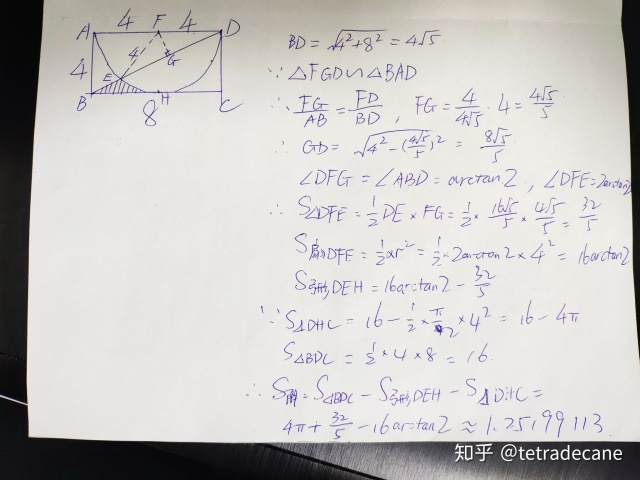 4 F 4
A D
4 4 G
E
B H C
8
BD = √4²+8² = 4√5
∵ △FGD∽△BAD
∴ FG/AB = FD/BD , FG = 4/4√5 · 4 = 4√5/5
∴ GD = √4²-(4√5/5)² = 8√5/5
∠DFG = ∠ABD = arctan2 , ∠DFE = 2arctan2
∴ S△DFE = 1/2 DE × FG = 1/2 × 16√5/5 × 4√5/5 = 32/5
S扇DFE = 1/2 αr² = 1/2 × 2arctan2 × 4² = 16arctan2
S弓形DEH = 16arctan2 - 32/5
∵ S△DHC = 16 - 1/2 × π/2 × 4² = 16 - 4π
S△BDC = 1/2 × 4 × 8 = 16
∴ S阴 = S△BDC - S弓形DEH - S△DHC =
4π + 32/5 - 16arctan2 ≈ 1.25199113
知乎 @tetradecane